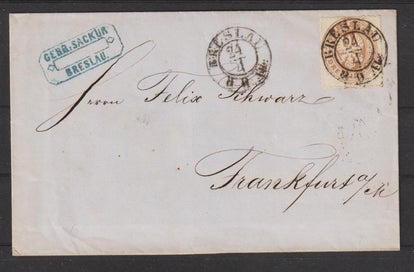 GEBR. SACKUR
BRESLAU.
BRESLAU
24
4
BRESLAU
24
4
Herrn Felix Schwarz
Frankfurt a/M